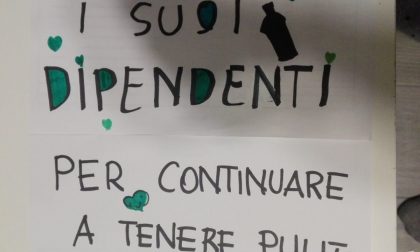 I SUOI
DIPENDENTI
PER CONTINUARE
A TENERE